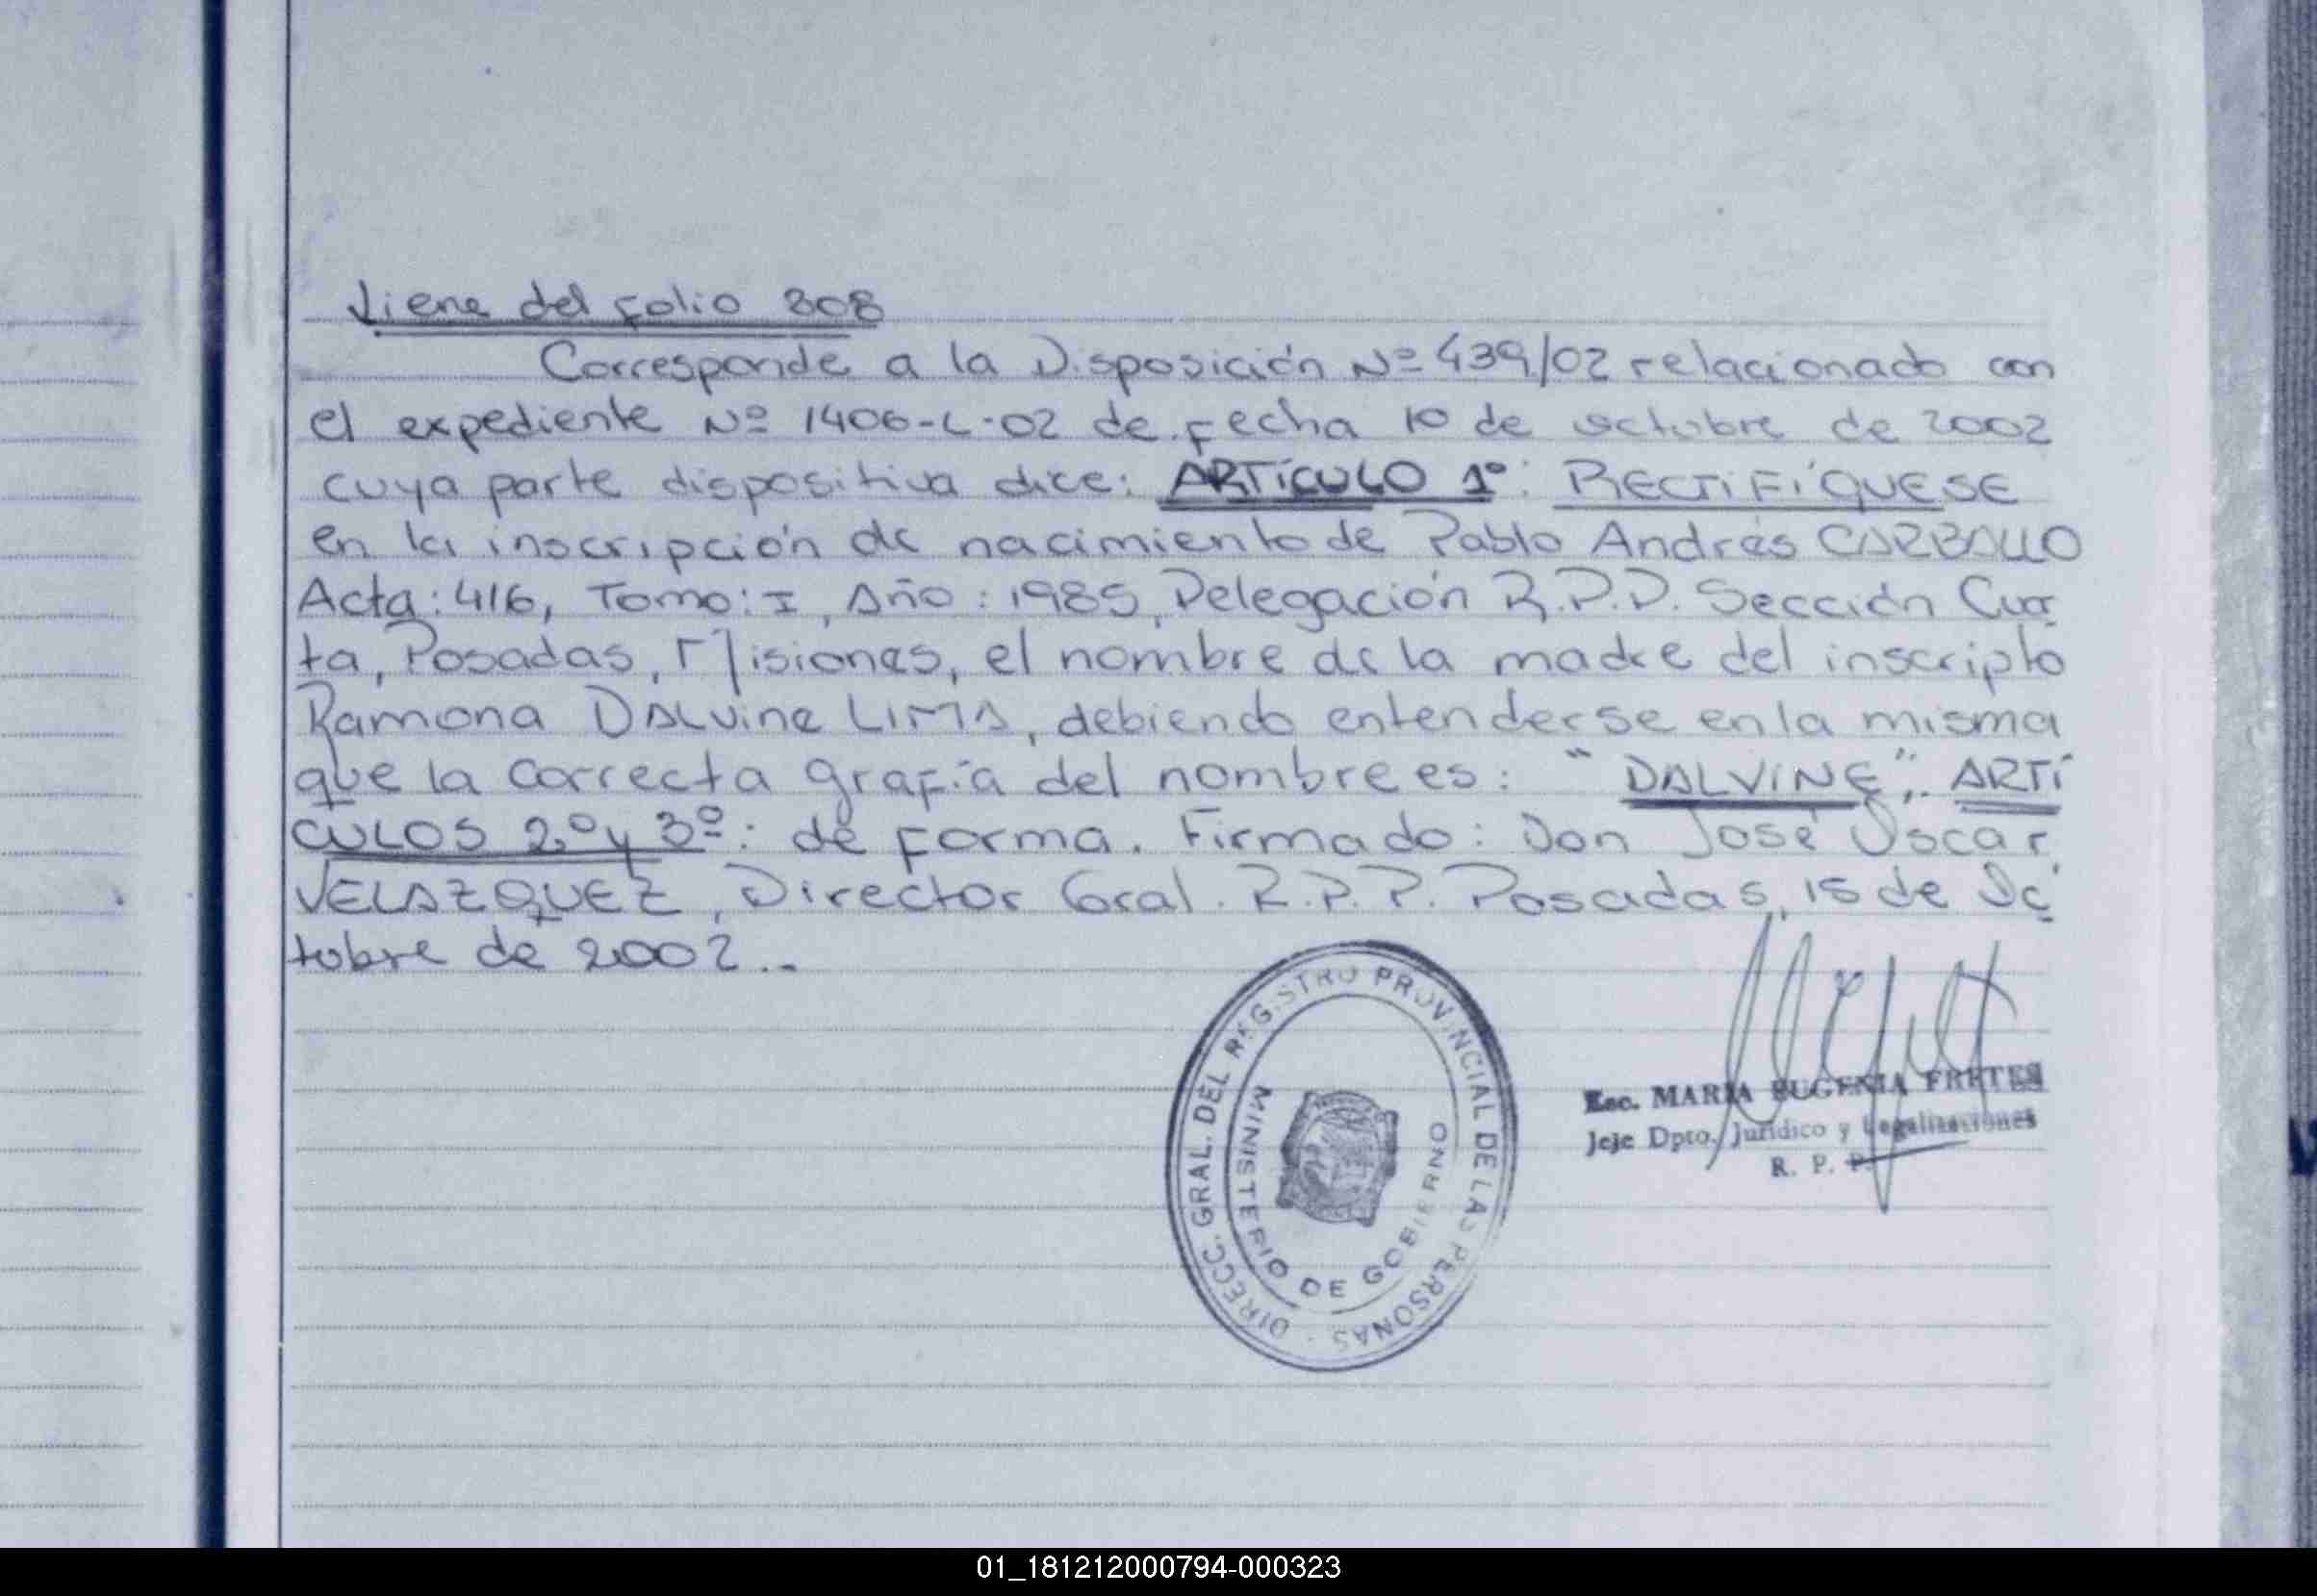 Viene del folio 308
Corresponde a la Disposición Nº 439/02 relacionado con
el expediente Nº 1406-L-02 de fecha 10 de octubre de 2002
cuya parte dispositiva dice: ARTÍCULO 1º: RECTIFÍQUESE
en la inscripción de nacimiento de Pablo Andrés CARBALLO
Acta: 416, Tomo: I, Año: 1985, Delegación R.P.P. Sección Cuar
ta, Posadas, Misiones, el nombre de la madre del inscripto
Ramona DALvine LIMA, debiendo entenderse en la misma
que la correcta grafía del nombre es: "DALVINE". ARTÍ
CULOS 2º y 3º: de forma. Firmado: Don José Oscar
VELAZQUEZ, Director Gral. R.P.P. Posadas, 15 de Oc
tubre de 2002..
DIRECC. GRAL. DEL REGISTRO PROVINCIAL DE LAS PERSONAS
MINISTERIO DE GOBIERNO
Esc. MARIA EUGENIA FRETES
Jefe Dpto. Jurídico y Legalizaciones
R. P. P.
01_181212000794-000323